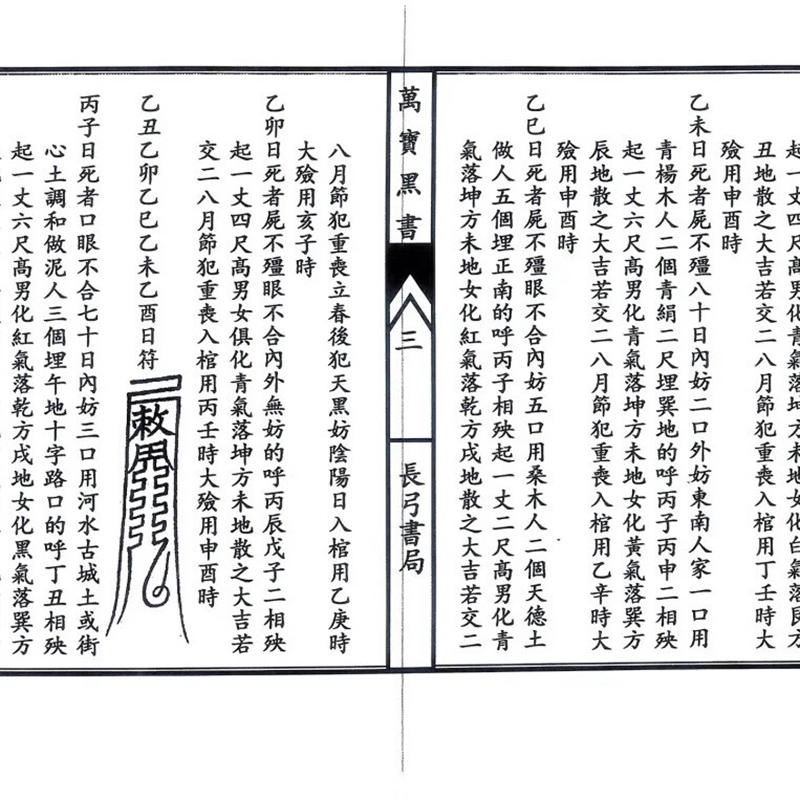 起一丈尺髙男化青氣落坤方未地女化白氣落艮方
丑地散之大吉若交二八月節犯重喪入棺用丁壬時大
殮用申酉時
乙未日死者屍不殭八十日內妨二口外妨東南人家一口用
青楊木人二個青絹二尺埋巽地的呼丙子丙申二相殃
起一丈六尺髙男化青氣落坤方未地女化黃氣落巽方
辰地散之大吉若交二八月節犯重喪入棺用乙辛時大
殮用申酉時
乙巳日死者屍不殭眼不合內妨五口用桑木人二個天德土
做人五個埋正南的呼丙子相殃起一丈二尺髙男化青
氣落坤方未地女化紅氣落乾方戌地散之大吉若交二
萬寶黑書
三
長弓書局
八月節犯重喪立春後犯天黑妨陰陽日入棺用乙庚時
大殮用亥子時
乙卯日死者屍不殭眼不合內外無妨的呼丙辰戊子二相殃
起一丈四尺髙男女俱化青氣落坤方未地散之大吉若
交二八月節犯重喪入棺用丙壬時大殮用申酉時
乙丑乙卯乙巳乙未乙酉日符
敕
丙子日死者口眼不合七十日內妨三口用河水古城土或街
心土調和做泥人三個埋午地十字路口的呼丁丑相殃
起一丈六尺髙男化紅氣落乾方戌地女化黑氣落巽方